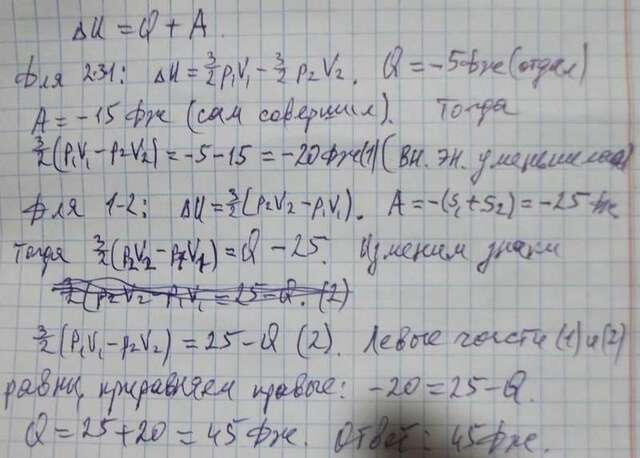 ΔU = Q + A.
Для 2-31: ΔU = 3/2 p₁V₁ - 3/2 p₂V₂. Q = -5 Дж (отдал)
A = -15 Дж (сам совершил). Тогда
3/2(p₁V₁ - p₂V₂) = -5 - 15 = -20 Дж (1) (вн. эн. уменьшилась)
Для 1-2: ΔU = 3/2(p₂V₂ - p₁V₁). A = -(S₁ + S₂) = -25 Дж
Тогда 3/2(p₂V₂ - p₁V₁) = Q - 25. Изменим знаки
3/2(p₂V₂ - p₁V₁ = 25 - Q. (2)
3/2(p₁V₁ - p₂V₂) = 25 - Q (2). Левые части (1) и (2)
равны, приравняем правые: -20 = 25 - Q.
Q = 25 + 20 = 45 Дж. Ответ: 45 Дж.